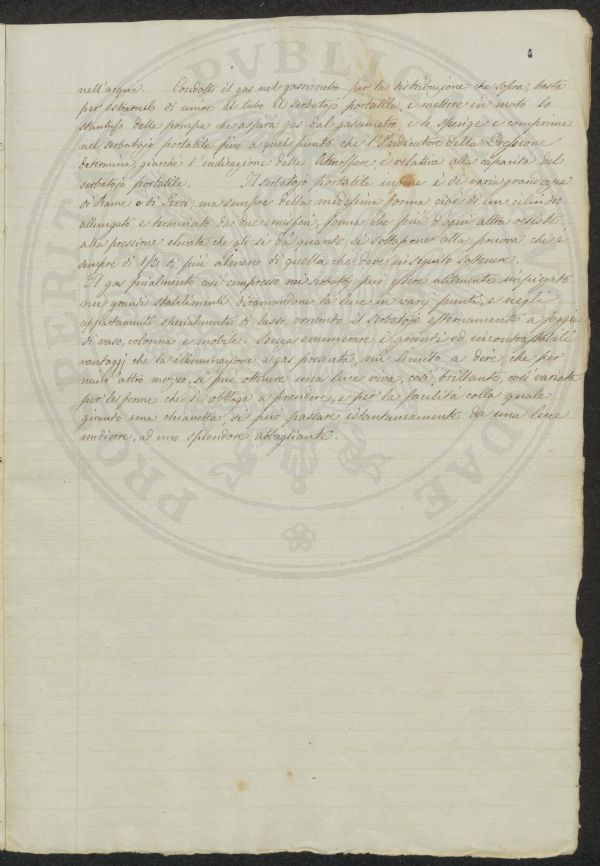 4
nell'acqua. Condotto il gas nel gassimetro per la distribuzione che sopra, basta
per estrarnelo di unire al tubo il serbatojo portatile, e mettere in moto lo
stantufo della pompa che aspira gas dal gassimetro, e lo spinge e comprime
nel serbatojo portatile fino a quel punto che l'Indicatore della Pressione
determina, giacché l'indicazione delle Atmosfere è relativa alla capacità del
serbatojo portatile. Il serbatojo portatile infine è di varia grandezza
di Rame o di ferro, ma sempre della medesima forma cioè di un cilindro
allungato e terminato da due emisferi, forma che più d'ogni altra resiste
alla pressione elevata che gli si dà quando si sottapone alla pruova, che è
sempre di 1/3 di più almeno di quella che deve in seguito sostenere.
Il gas finalmente così compresso nei serbatoj può essere utilmente impiegato
nei grandi stabilimenti diramandone la luce in varj punti, e negli
appartamenti specialmente di lusso, ornando il serbatojo esternamente a foggia
di vaso, colonna e mobile. Senza enumerare i grandi ed incontrastabili
vantaggj che la illuminazione a gas presenta, mi limito a dire, che per
niun'altro mezzo, si può ottenere una luce viva, così brillante, così variata
per le forme che si obbliga a prendere, e per la facilità colla quale
girando una chiavetta si può passare istantaneamente da una luce
mediocre, ad uno splendore abbagliante.
PERITIA PVBLIC DAE PRO